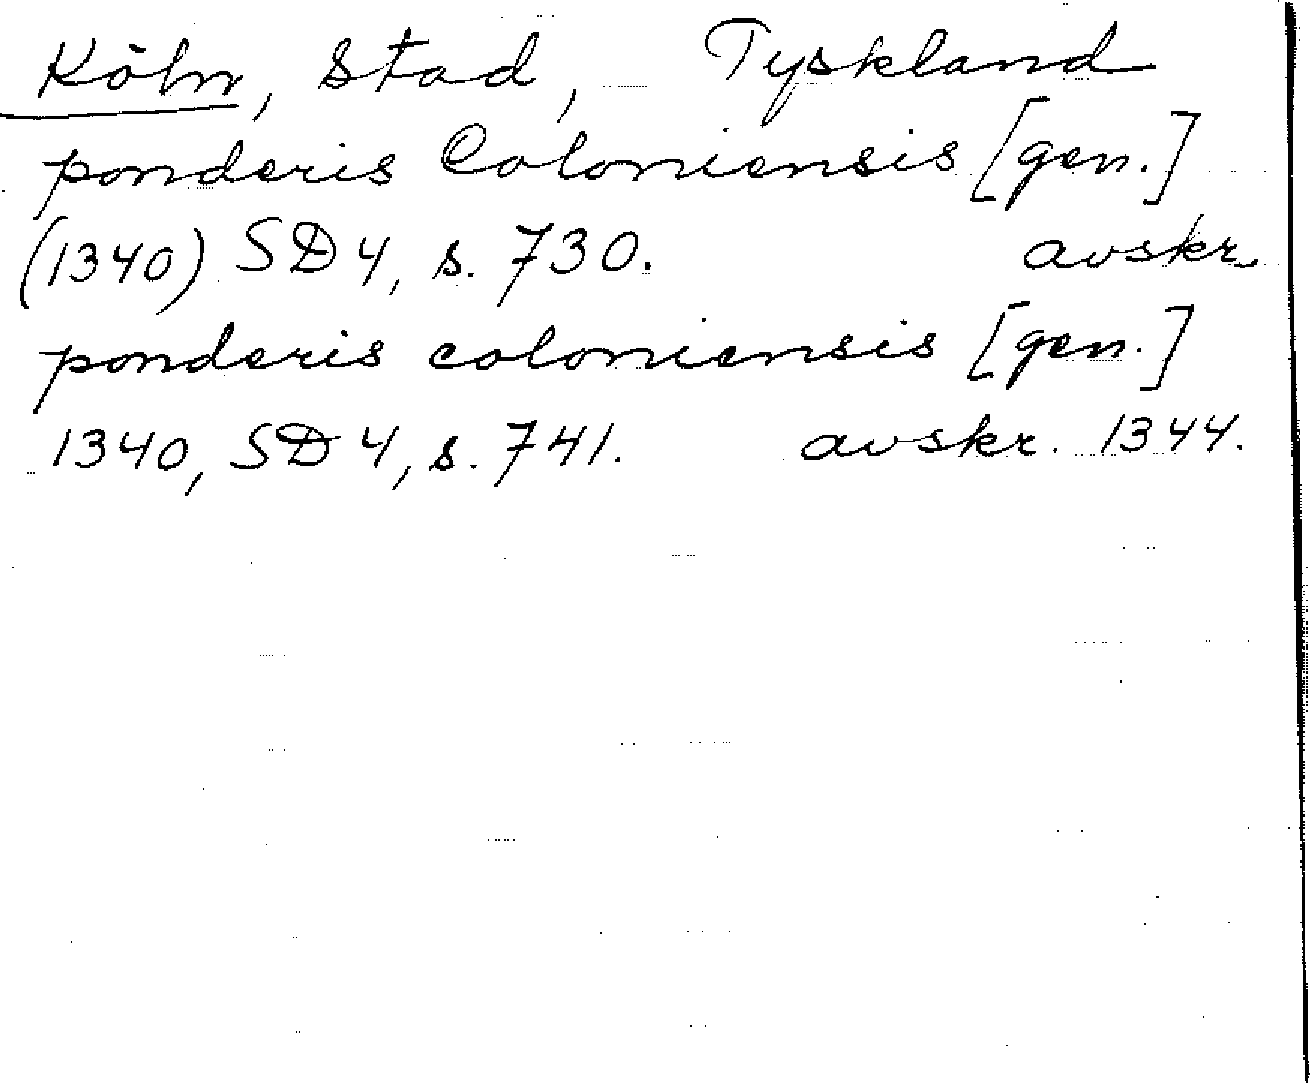 Köln, Stad, Tyskland
ponderis Coloniensis [gen.]
(1340) SD 4, s. 730. avskr.
ponderis coloniensis [gen.]
1340, SD 4, s. 741. avskr. 1344.